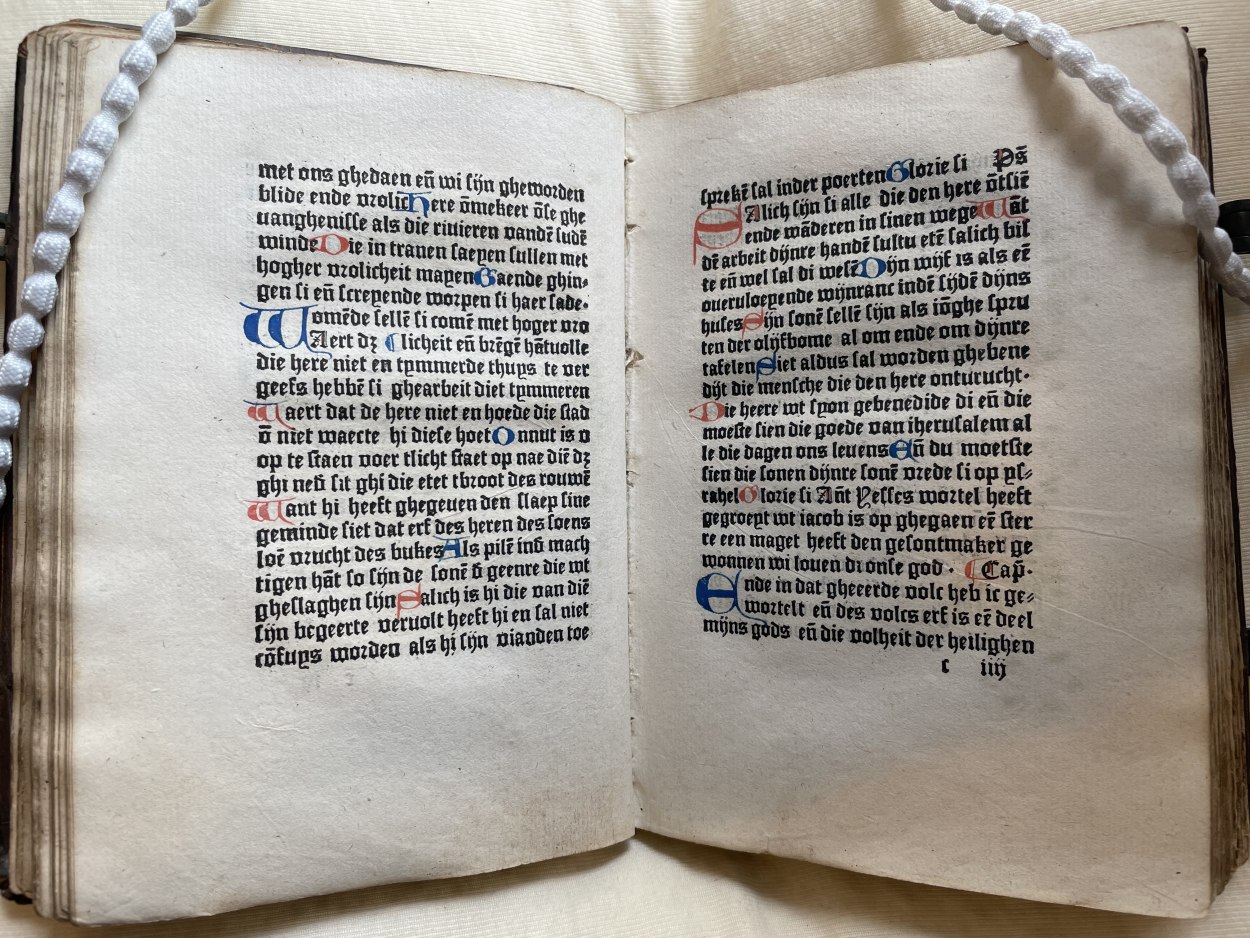 met ons ghedaen en̄ wi sijn gheworden
blide ende vrolic̄ Here ōmekeer ōse ghe
uanghenisse als die riuieren vandē sudē
winde Die in tranen saeyen sullen met
hogher vrolicheit mayen Gaende ghin⸗
gen si en̄ screyende worpen si haer sade·
Womēde sellē si comē met hoger vro
Aert dꝫ ¶ licheit en̄ brēgē hātuolle
die here niet en tymmerde thuys te ver
geefs hebbē si ghearbeit diet tymmeren
Waert dat de here niet en hoede die stad
v̄ niet waecte hi diese hoet Onnut is v
op te staen voer tlicht staet op nae diē dꝫ
ghi ned̄ sit ghi die etet tbroot des rouwē
Want hi heeft ghegeuen den slaep sine
geminde siet dat erf des heren des soens
loē vrucht des bukes Als pilē ind̄ mach
tigen hāt so sijn de sonē d̄ geenre die wt
gheslaghen sijn Salich is hi die van diē
sijn begeerte veruolt heeft hi en sal niet
cōfuys worden als hi sijn vianden toe
sprekē sal inder poerten Glorie si Ps̄
SAlich sijn si alle die den here ōtsiē
ende wāderen in sinen wege Wāt
dē arbeit dijnre handē sultu etē salich bis
te en̄ wel sal di wesē Dijn wijf is als eē
oueruloeyende wijnranc indē sijdē dijns
huses Sijn sonē sellē sijn als iōghe spru
ten der olijfbome al om ende om dijnre
tafelen Siet aldus sal worden ghebene
dijt die mensche die den here ontvrucht·
Die heere wt syon gebenedide di en̄ die
moeste sien die goede van iherusalem al
le die dagen ons leuens En̄ du moetste
sien die sonen dijnre sonē vrede si op ys⸗
rahel Glorie si Ant̄ Yesses wortel heeft
gegroeyt wt iacob is op ghegaen eē ster
re een maget heeft den gesontmaker ge
wonnen wi louen di onse god · ¶ Cap̄·
Ende in dat gheeerde volc heb ic ge⸗
wortelt en̄ des volcs erf is eē deel
mijns gods en̄ die volheit der heilighen
c iiij